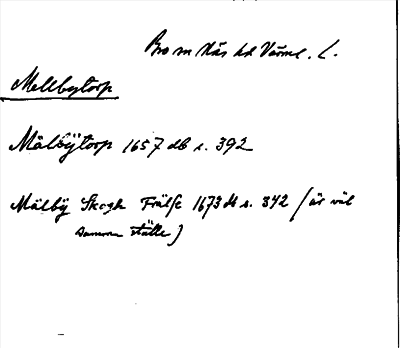 Bro sn Näs hd Värml. l.
Mellbytorp
Mälbÿtorp 1657 db s. 392
Mälbÿ Skogh Frälse 1673 db s. 342 (är väl
samma ställe)